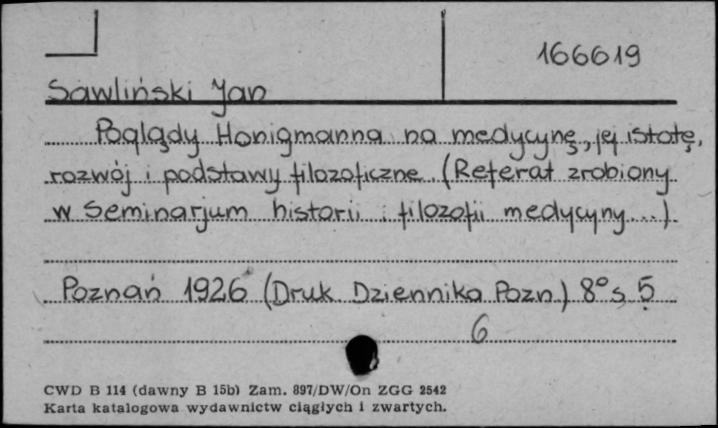 166619
Sawliński Jan
Poglądy Honigmanna na medycynę, jej istotę,
rozwój i podstawy filozoficzne (Referat zrobiony
w Seminarjum historii i filozofii medycyny...)
Poznań 1926 (Druk Dziennika Pozn.) 8° s 5
6
CWD B 114 (dawny B 15b) Zam. 897/DW/On ZGG 2542
Karta katalogowa wydawnictw ciągłych i zwartych.